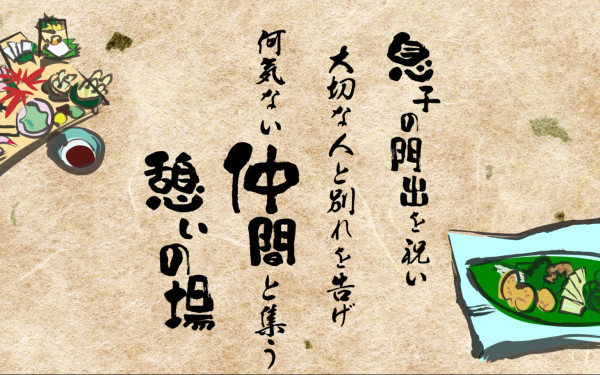 息子の門出を祝い
大切な人と別れを告げ
何気ない仲間と集う
憩いの場